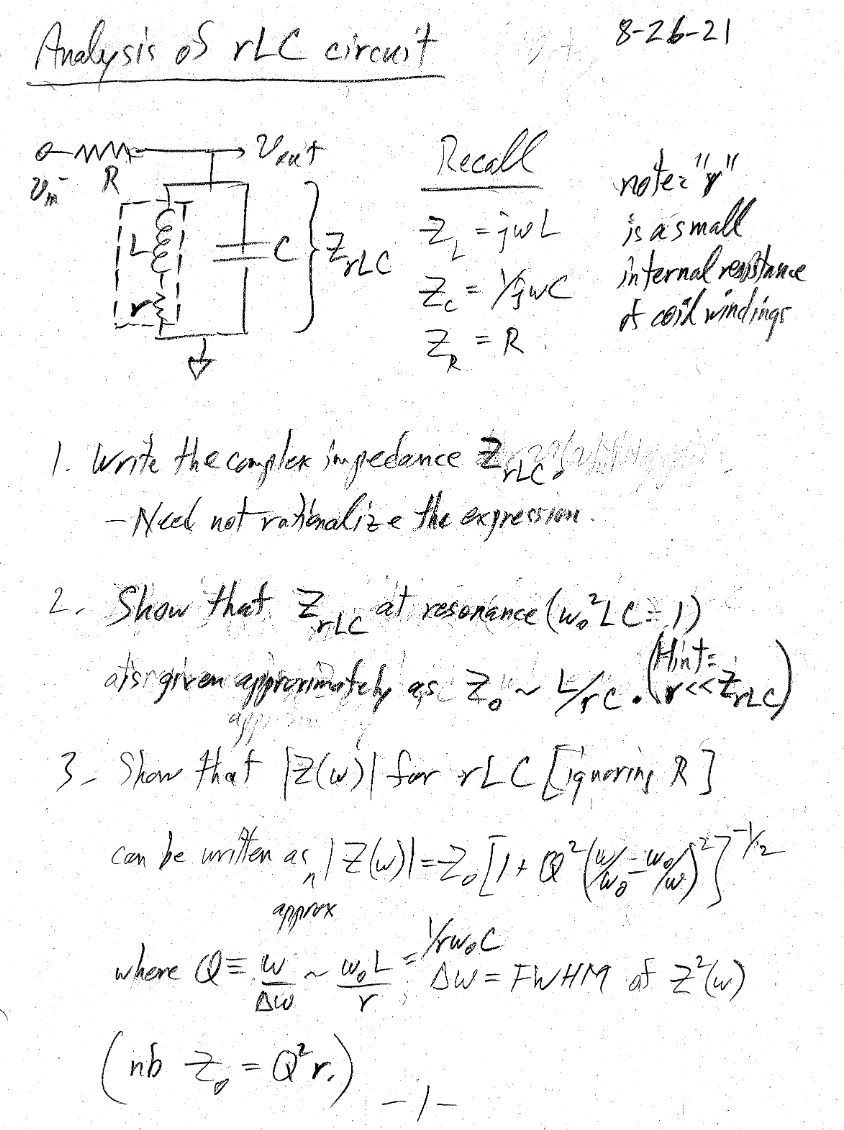 Analysis of rLC circuit
8-26-21
Vin
R
Vout
L
r
C
ZrLC
Recall
Z_L = jωL
Z_C = 1/jωC
Z_R = R
note: "r"
is a small
internal resistance
of coil windings
1. Write the complex impedance ZrLC.
- Need not rationalize the expression.
2. Show that ZrLC at resonance (ω₀²LC = 1)
given approximately as Z₀ ~ L/rC. (Hint: r << ZrLC)
3. Show that |Z(ω)| for rLC [ignoring R]
can be written as |Z(ω)| = Z₀[1 + Q²(ω/ω₀ - ω₀/ω)²]^-1/2
approx
where Q ≡ ω/Δω ~ ω₀L/r = 1/rω₀C, Δω = FWHM of Z²(ω)
(nb Z₀ = Q²r.)
-1-